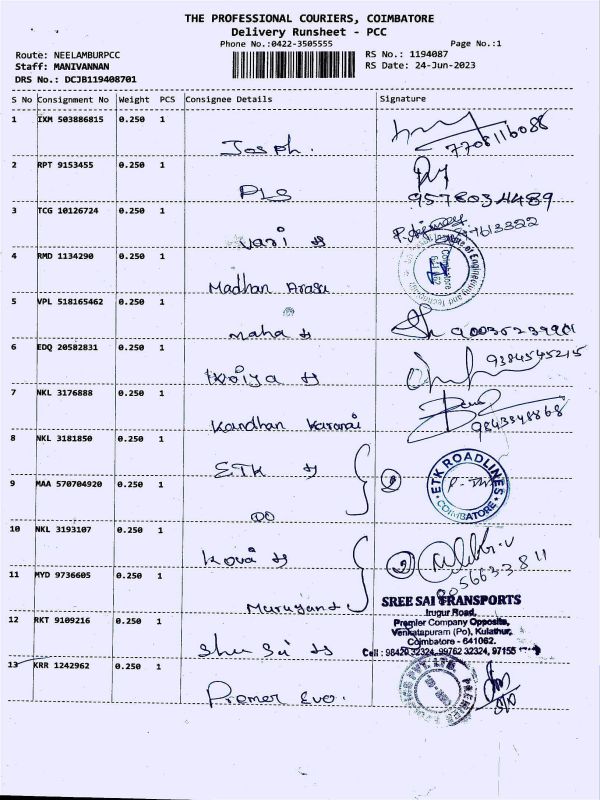 THE PROFESSIONAL COURIERS, COIMBATORE
Delivery Runsheet - PCC
Phone No.:0422-3505555 Page No.:1
Route: NEELAMBURPCC RS No.: 1194087
Staff: MANIVANNAN RS Date: 24-Jun-2023
DRS No.: DCJB119408701
S No Consignment No Weight PCS Consignee Details Signature
1 IXM 503886815 0.250 1
Joseph. 7708116088
2 RPT 9153455 0.250 1
PLS 9578034489
3 TCG 10126724 0.250 1
Vari
4 RMD 1134290 0.250 1
Madhan Arasu
5 VPL 518165462 0.250 1
Maha
6 EDQ 20582831 0.250 1
9384545215
7 NKL 3176888 0.250 1
Kandhan 9843348868
8 NKL 3181850 0.250 1
ETK
ETK ROADLINES
COIMBATORE
9 MAA 570704920 0.250 1
DO
10 NKL 3193107 0.250 1
11 MYD 9736605 0.250 1
Murugan
SREE SAI TRANSPORTS
Irugur Road,
Premier Company Opposite,
Venkatapuram (Po), Kulathur,
Coimbatore - 641062.
Cell : 98420 32324, 99762 32324, 97155
12 RKT 9109216 0.250 1
13 KRR 1242962 0.250 1
Premer Evo.